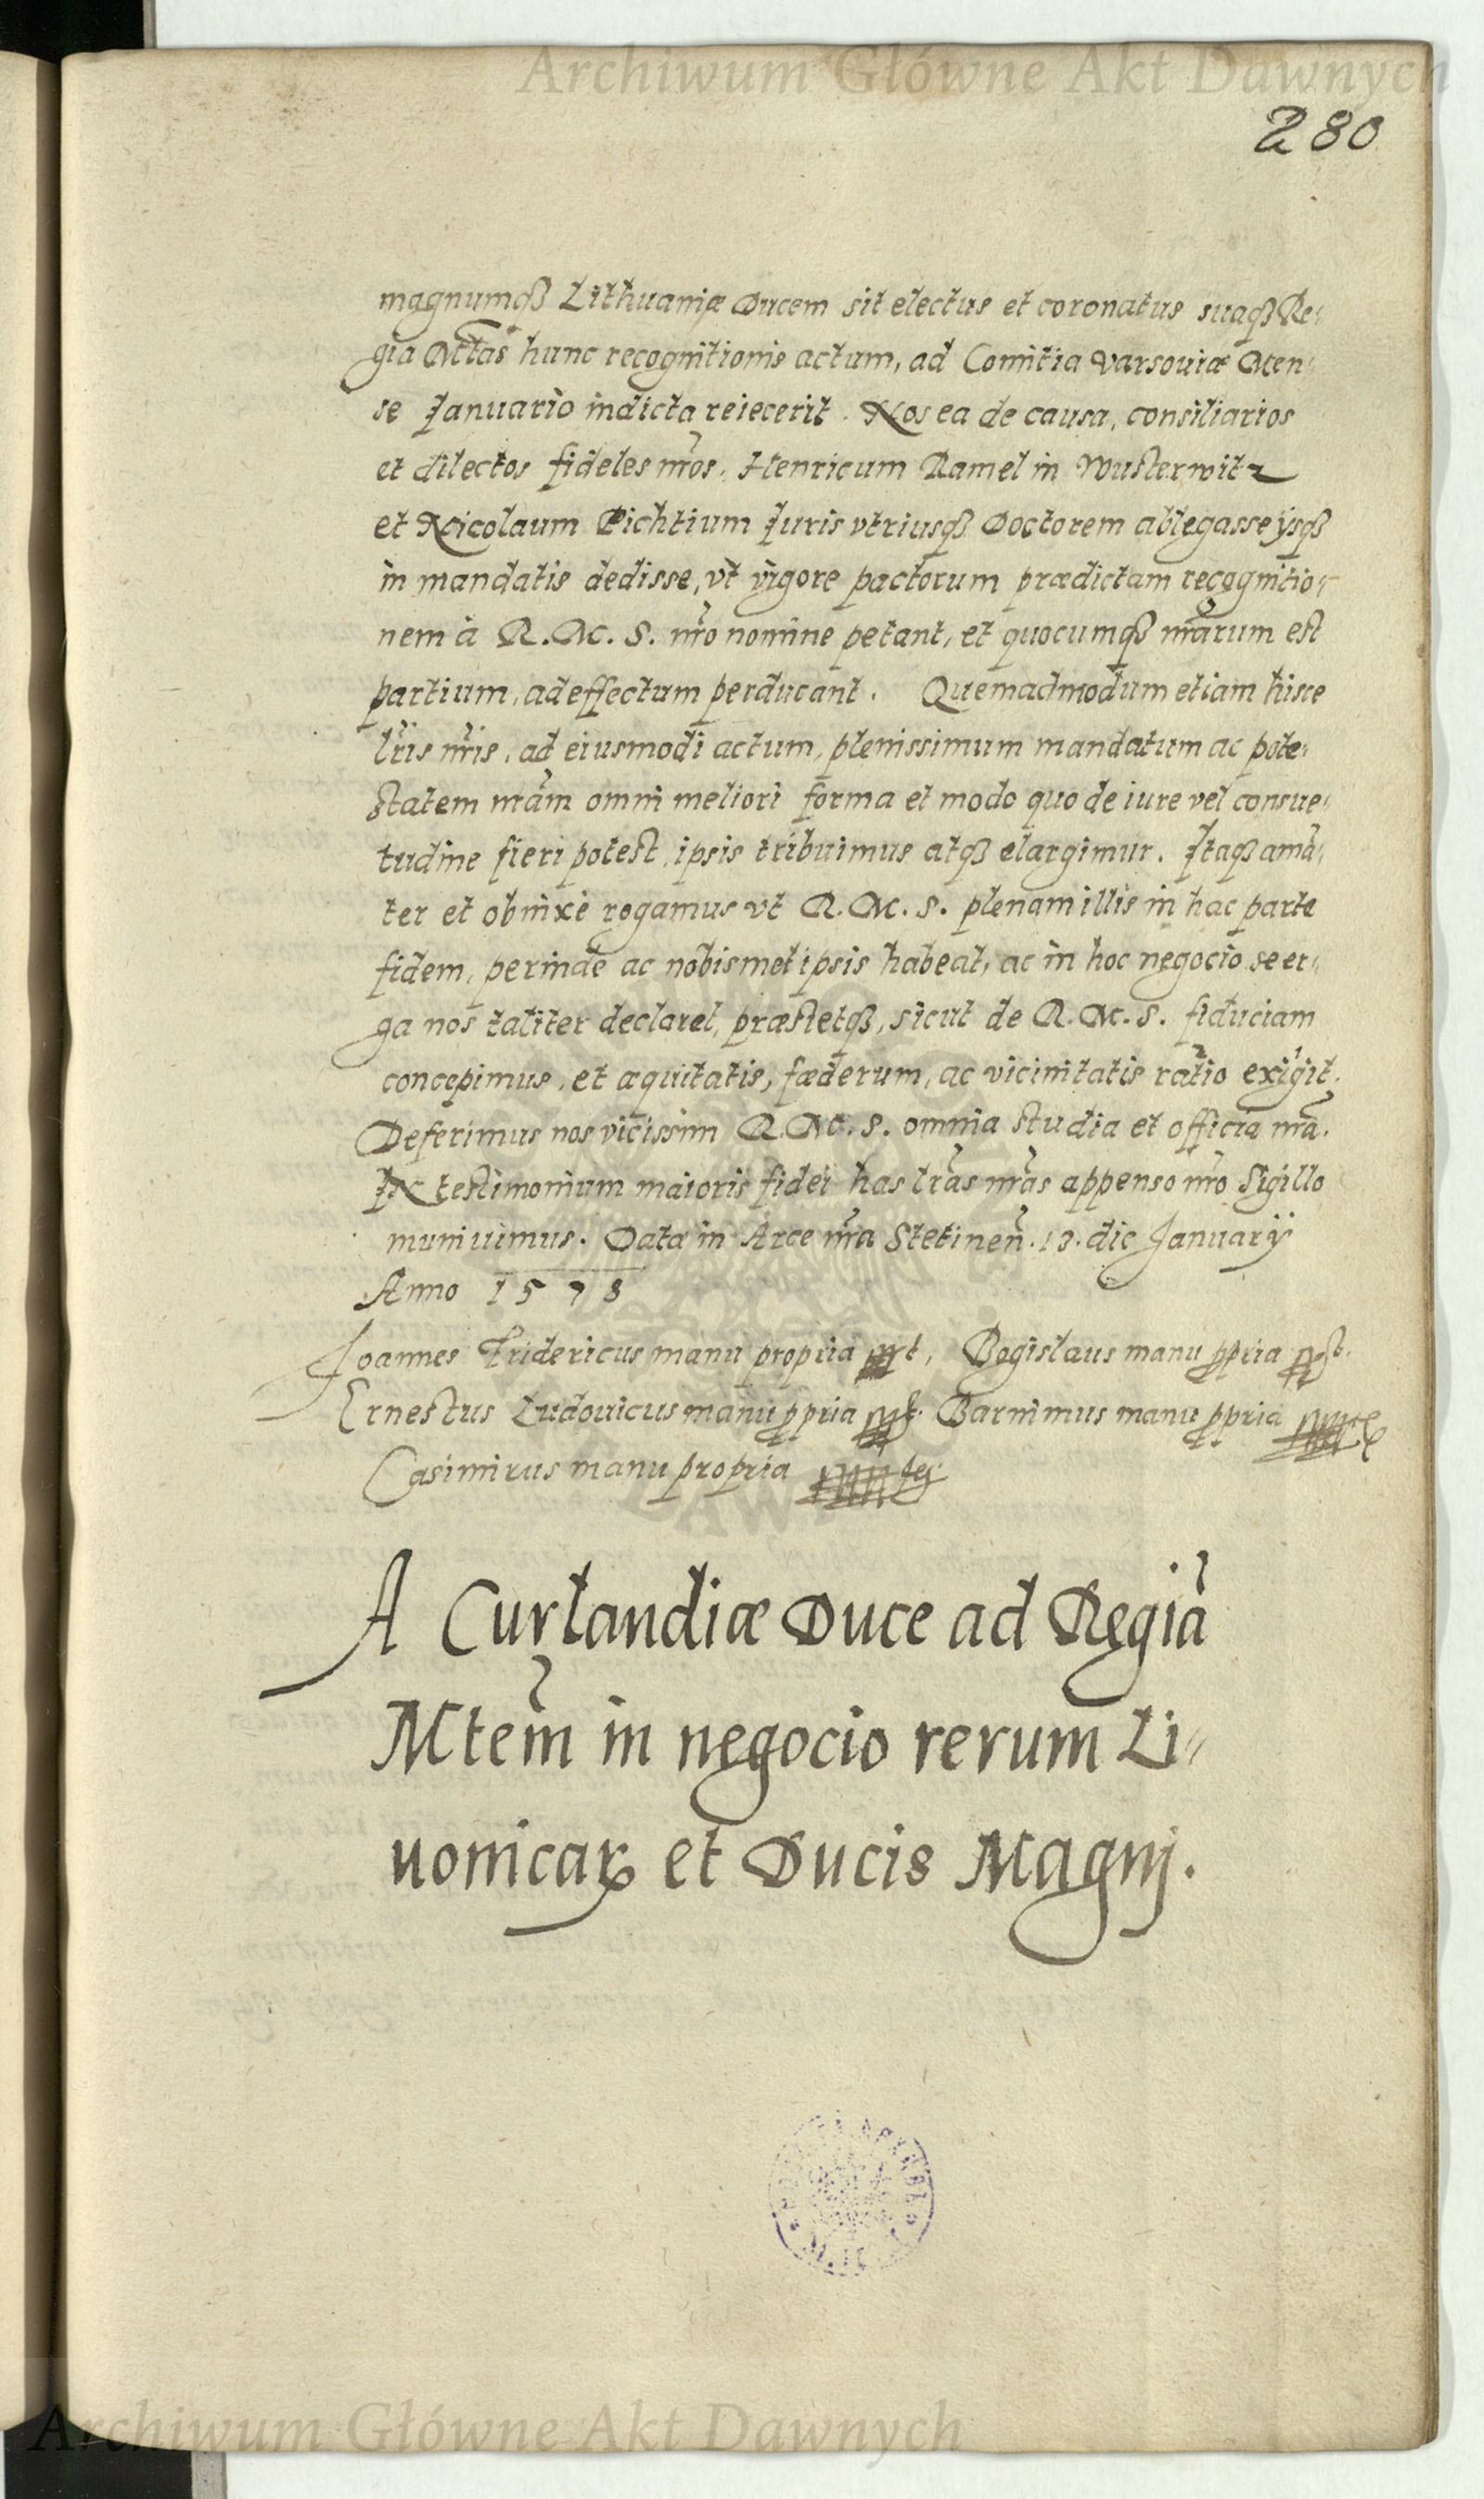 Archiwum Główne Akt Dawnych
280
magnumqȝ Lithuaniæ Ducem sit electus et coronatus suaqȝ Re-
gia Mtas hunc recognitionis actum, ad Comitia Varsouiæ Men-
se Januario indicta reiecerit. Nos ea de causa, consiliarios
et dilectos fideles nr̃os, Henricum Ramel in Wusterwitz
et Nicolaum Pichtium Juris vtriusqȝ Doctorem ablegasse ijsqȝ
in mandatis dedisse, vt vigore pactorum prædictam recognitio-
nem à R. M. S. nr̃o nomine petant, et quocumqȝ nr̃arum est
partium, ad effectum perducant. Quemadmodum etiam hisce
lr̃is nr̃is, ad eiusmodi actum, plenissimum mandatum ac pote-
statem nr̃am omni meliori forma et modo quo de iure vel consue-
tudine fieri potest, ipsis tribuimus atqȝ elargimur. Itaqȝ amã-
ter et obnixè rogamus vt R. M. S. plenam illis in hac parte
fidem, perinde ac nobismet ipsis habeat, ac in hoc negocio se er-
ga nos taliter declaret, præstetqȝ, sicut de R. M. S. fiduciam
concepimus, et æquitatis, fœderum, ac vicinitatis ratio exigit.
Deferimus nos vicissim R. M. S. omnia studia et officia nr̃a.
IN testimonium maioris fidei has lr̃as nr̃as appenso nr̃o Sigillo
muniuimus. Datæ in Arce nr̃a Stetinen̄. 13. die Januarÿ
Anno 1578
Joannes Fridericus manu propria sst, Bogislaus manu ppria sst.
Ernestus Ludouicus manu ppria sst. Barnimus manu ppria
Casimirus manu propria
A Curlandiæ Duce ad Regiã
Mtem̃ in negocio rerum Li-
uonicaꝝ et Ducis Magnj.
Archiwum Główne Akt Dawnych